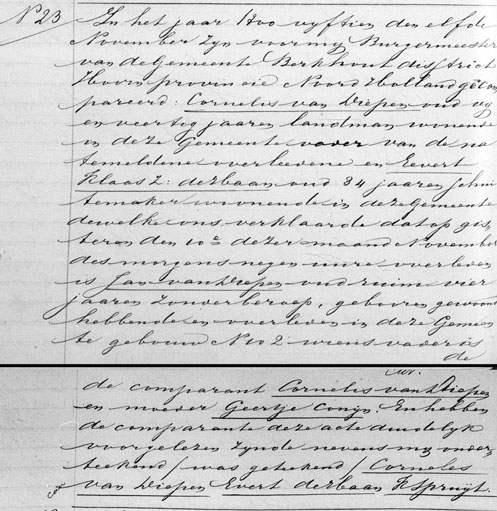 N 23
In het jaar 1800 vyftien den elfde
November zyn voor my Burgermeester
van de Gemeente Berkhout district
Hoorn provincie Noord Holland gecom
pareerd: Cornelis van Diepen oud vyf
en veertog jaaren landman wonende
in deze Gemeente vader van de na
temeldene overleedene en Eevert
Klaas Z: derbaan oud 34 jaaren schui
temaker wonende in deze Gemeente
dewelke ons verklaarde dat op gis
teren den 10e dezer maand November
des morgens negen uure overleden
is Jan van Diepen oud ruim vier
jaaren zonder beroep, gebooren gewoond
hebbende en overleden in deze Gemeen
te gebouw No 2 wiens vader is
de
de comparant Cornelis van Diepen
en moeder Geertje Conyn. En hebben
de comparante deze acte duidelyk
voorgelezen zynde nevens my onder
teekend / was geteekend / Cornelis
van Diepen Evert derbaan K Spruyt.